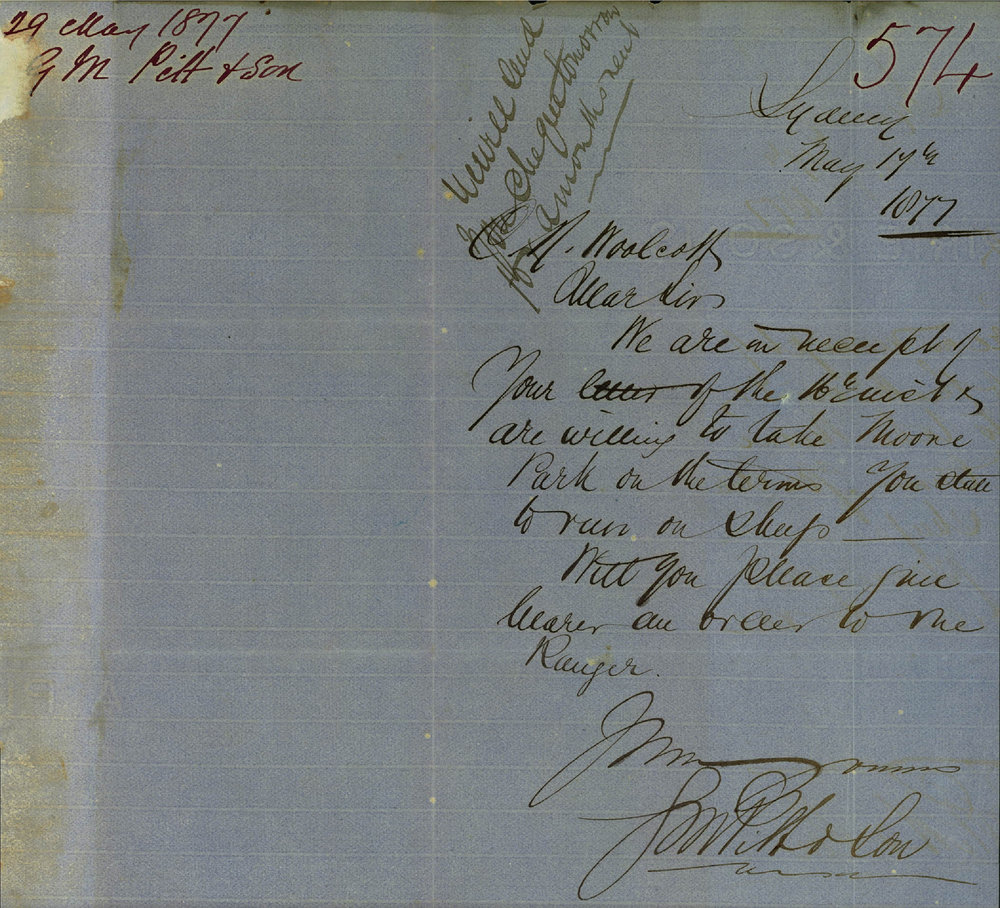 29 May 1877
G M Pitt & Son
574
We will send
you cheque tomorrow
for a months rent
Sydney
May 17th
1877
C. H. Woolcott
Dear Sir
We are in receipt of
Your letter of the 16th inst &
are willing to take Moore
Park on the terms You state
to run on sheep
Will you please give
bearer an order to the
Ranger.
Yours
G M Pitt & Son